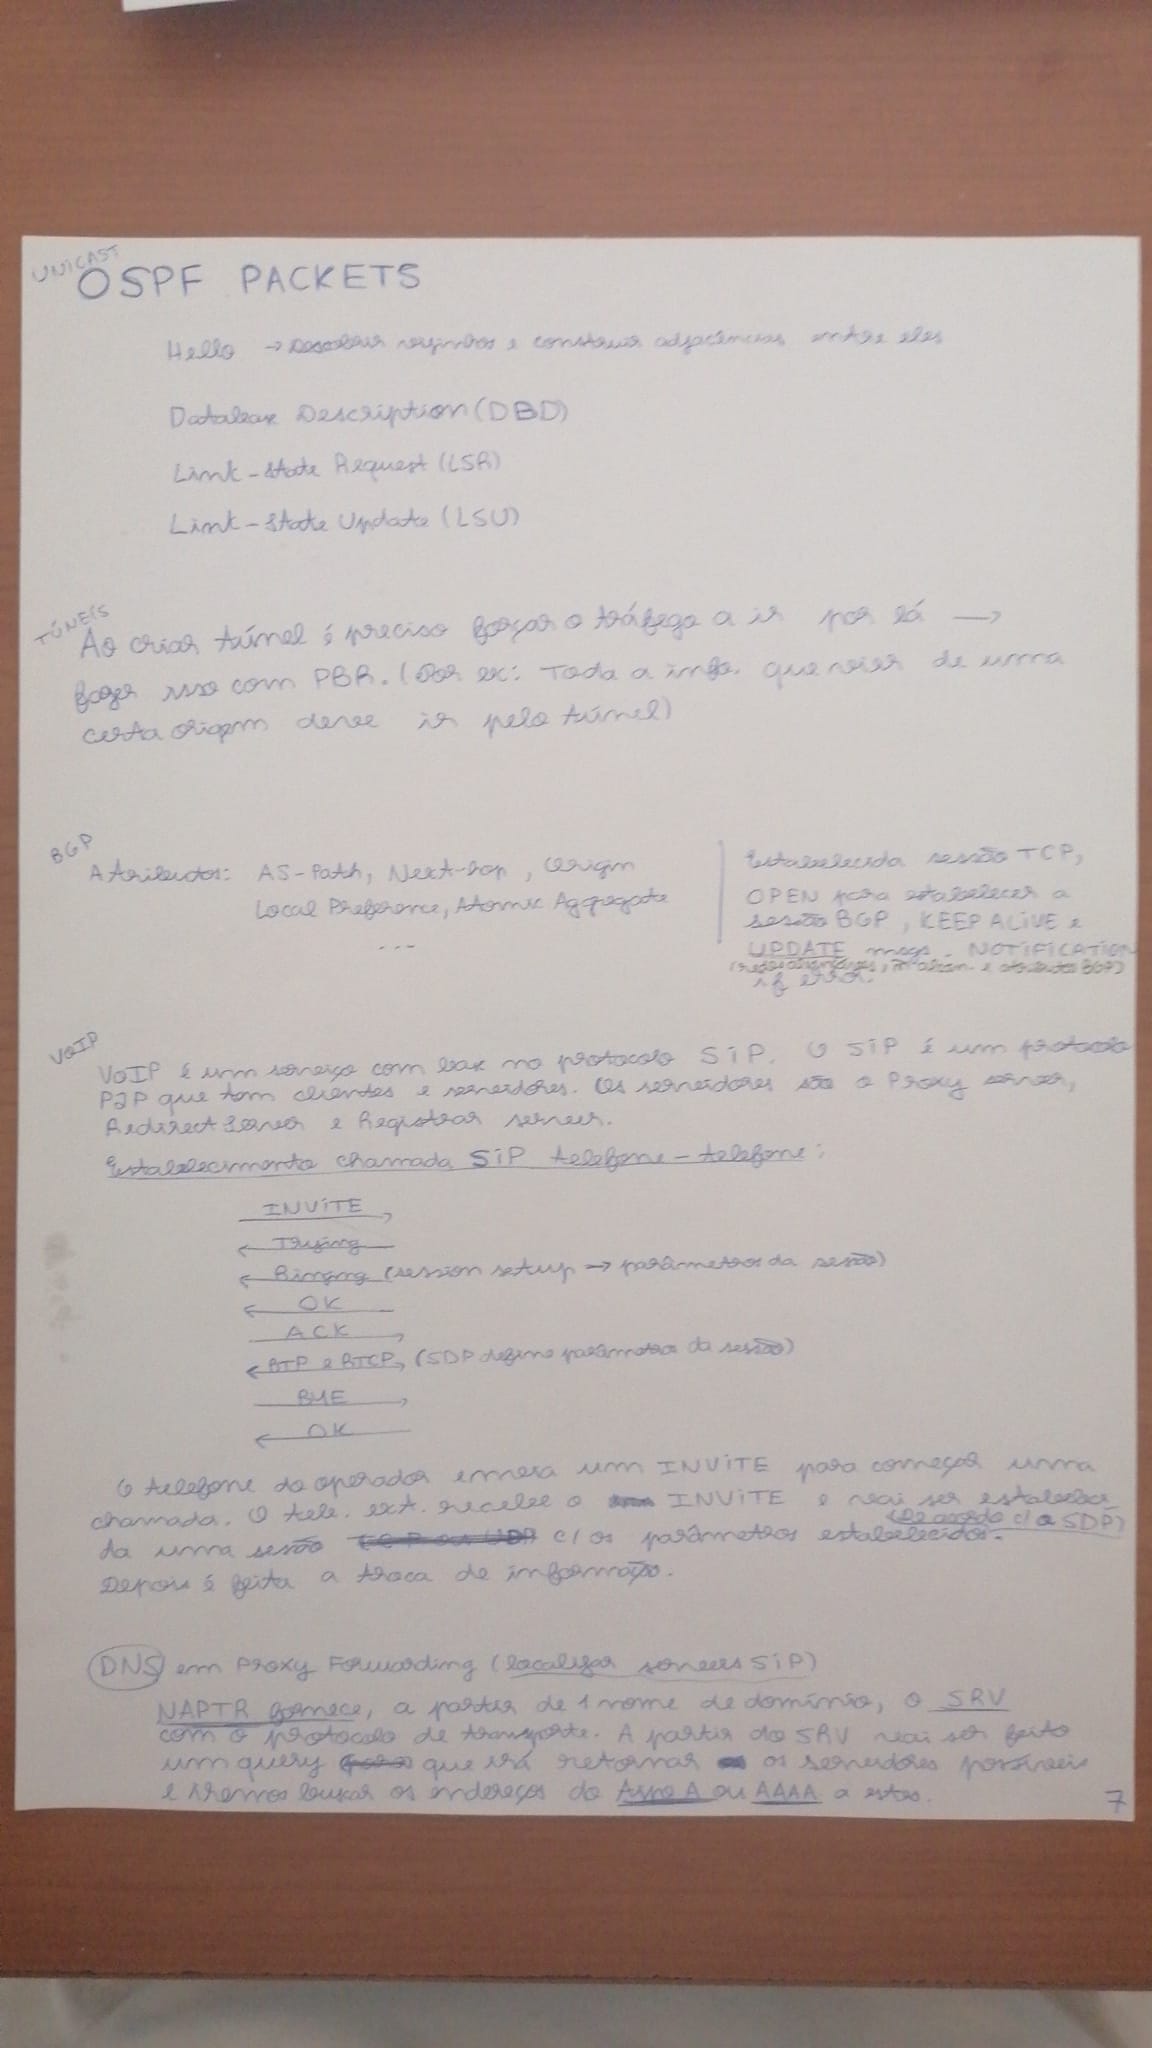 UNICAST
OSPF PACKETS
Hello → Descobrir vizinhos e construir adjacências entre eles
Database Description (DBD)
Link-State Request (LSR)
Link-State Update (LSU)
TÚNEIS
Ao criar túnel é preciso forçar o tráfego a ir por lá →
fazer isso com PBR. (Por ex: Toda a info. que vier de uma
certa origem deve ir pelo túnel)
BGP
Atributos: AS-Path, Next-hop, Origin
Local Preference, Atomic Aggregate
...
Estabelecida sessão TCP,
OPEN para estabelecer a
sessão BGP, KEEP ALIVE e
UPDATE msgs. NOTIFICATION
(redes e atributos BGP)
if error.
VOIP
VoIP é um serviço com base no protocolo SiP. O SiP é um protocolo
P2P que tem clientes e servidores. Os servidores são o Proxy server,
Redirect Server e Registrar server.
Estabelecimento chamada SiP telefone-telefone:
INViTE
Trying
Ringing (session setup → parâmetros da sessão)
OK
ACK
RTP e RTCP, (SDP define parâmetros da sessão)
BYE
OK
O telefone do operador envia um INViTE para começar uma
chamada. O tele. ext. recebe o INViTE e vai ser estabeleci-
(de acordo c/ o SDP)
da uma sessão c/ os parâmetros estabelecidos.
Depois é feita a troca de informação.
DNS em Proxy Forwarding (localizar servers SiP)
NAPTR fornece, a partir de 1 nome de domínio, o SRV
com o protocolo de transporte. A partir do SRV vai ser feito
um query que irá retornar os servidores possíveis
e iremos buscar os endereços do tipo A ou AAAA a estes.
7